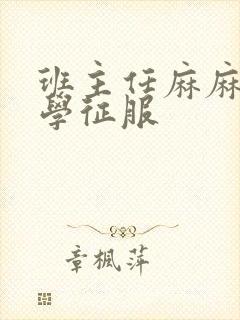 班主任麻麻
學征服
章楓萍